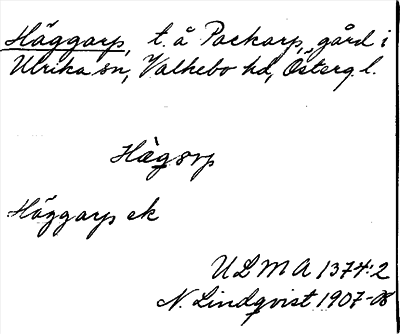 Häggarp, t. å Packarp, gård i
Ulrika sn, Valkebo hd, Österg. l.
Hàgɜrp
Häggarp ek
ULMA 1374:2
N. Lindqvist 1907-08